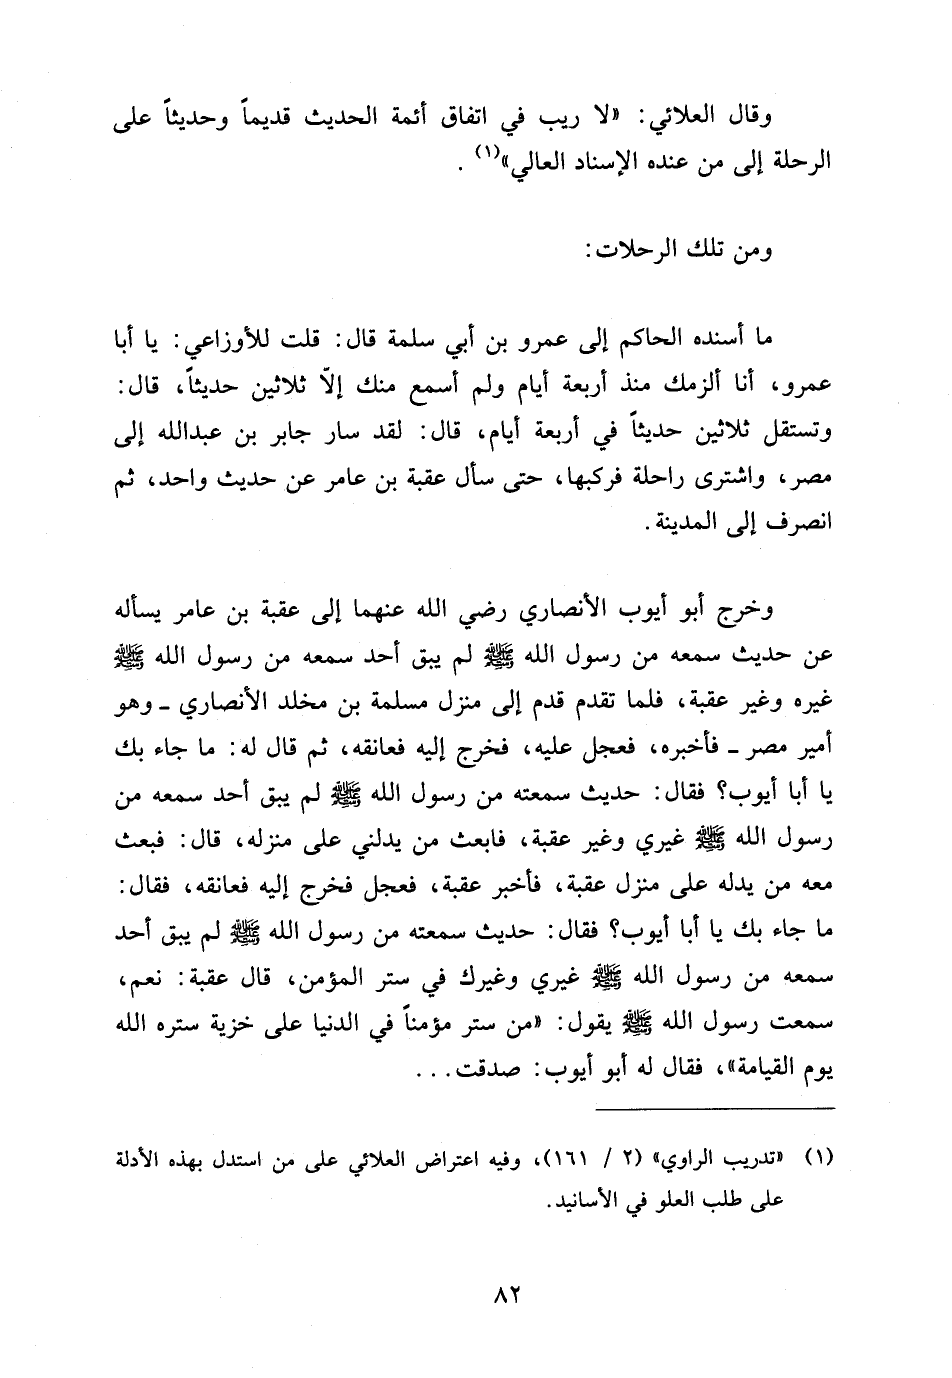 وقال العلائي: «لا ريب في اتفاق أئمة الحديث قديماً وحديثاً على
الرحلة إلى من عنده الإسناد العالي»(١) .
ومن تلك الرحلات:
ما أسنده الحاكم إلى عمرو بن أبي سلمة قال: قلت للأوزاعي: يا أبا
عمرو، أنا ألزمك منذ أربعة أيام ولم أسمع منك إلاّ ثلاثين حديثاً، قال:
وتستقل ثلاثين حديثاً في أربعة أيام، قال: لقد سار جابر بن عبدالله إلى
مصر، واشترى راحلة فركبها، حتى سأل عقبة بن عامر عن حديث واحد، ثم
انصرف إلى المدينة.
وخرج أبو أيوب الأنصاري رضي الله عنهما إلى عقبة بن عامر يسأله
عن حديث سمعه من رسول الله ﷺ لم يبق أحد سمعه من رسول الله ﷺ
غيره وغير عقبة، فلما تقدم قدم إلى منزل مسلمة بن مخلد الأنصاري ـ وهو
أمير مصر ـ فأخبره، فعجل عليه، فخرج إليه فعانقه، ثم قال له: ما جاء بك
يا أبا أيوب؟ فقال: حديث سمعته من رسول الله ﷺ لم يبق أحد سمعه من
رسول الله ﷺ غيري وغير عقبة، فابعث من يدلني على منزله، قال: فبعث
معه من يدله على منزل عقبة، فأخبر عقبة، فعجل فخرج إليه فعانقه، فقال:
ما جاء بك يا أبا أيوب؟ فقال: حديث سمعته من رسول الله ﷺ لم يبق أحد
سمعه من رسول الله ﷺ غيري وغيرك في ستر المؤمن، قال عقبة: نعم،
سمعت رسول الله ﷺ يقول: «من ستر مؤمناً في الدنيا على خزية ستره الله
يوم القيامة»، فقال له أبو أيوب: صدقت...
(١) «تدريب الراوي» (٢ / ١٦١)، وفيه اعتراض العلائي على من استدل بهذه الأدلة
على طلب العلو في الأسانيد.
٨٢